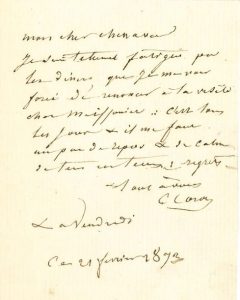 mon cher chenavard
Je suis tellement fatigué par
les diners que je me vois
forcé de renoncer à la visite
chez Meissonier : c'est tous
les jours & il me faut
un peu de repos & de calme
regrets
tout à vous
C. Corot
Ce Vendredi
Ce 21 février 1873